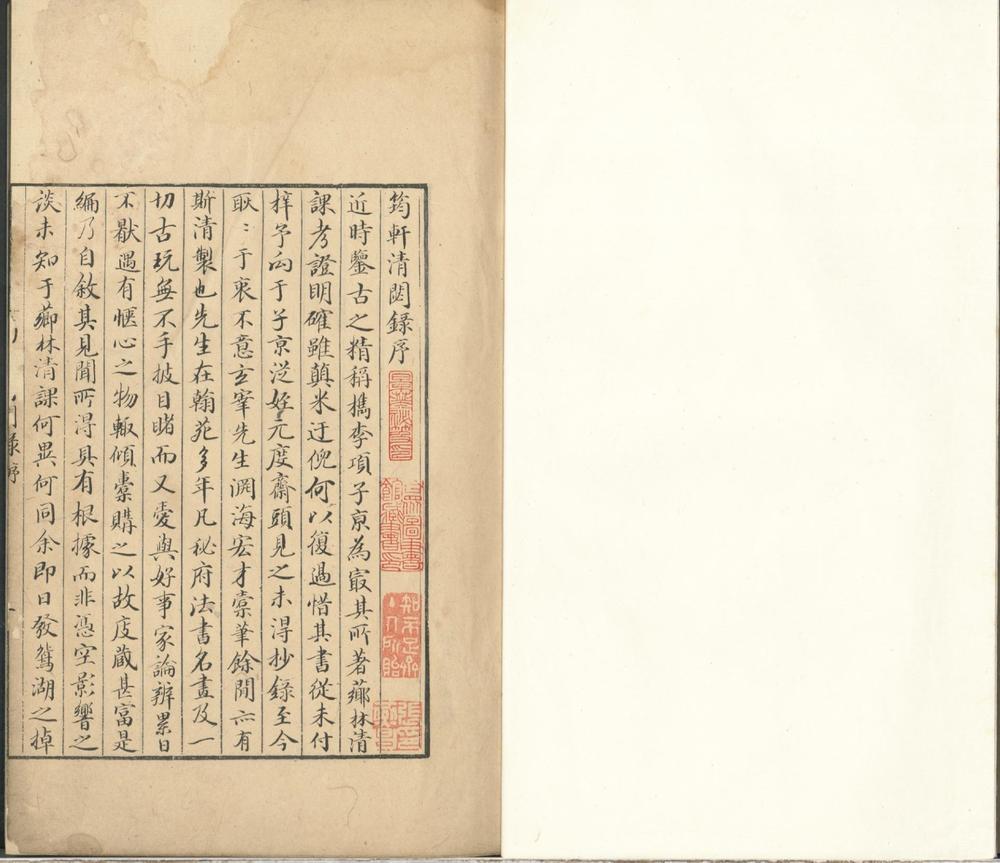 筠軒清閟錄序
近時鑒古之精稱檇李項子京為冣其所著薌林清
課考證明確雖顛米迂倪何以復過惜其書從未付
梓予向于子京从姪元度齋頭見之未得抄錄至今
耿〻于衷不意玄宰先生淵海宏才橐筆餘閒亦有
斯清製也先生在翰苑多年凡秘府法書名畫及一
切古玩無不手披目睹而又愛與好事家論辨累日
不厭遇有愜心之物輙傾橐購之以故庋藏甚富是
編乃自敘其見聞所得具有根據而非憑空影響之
談未知于薌林清課何異何同余即日發鴛湖之掉